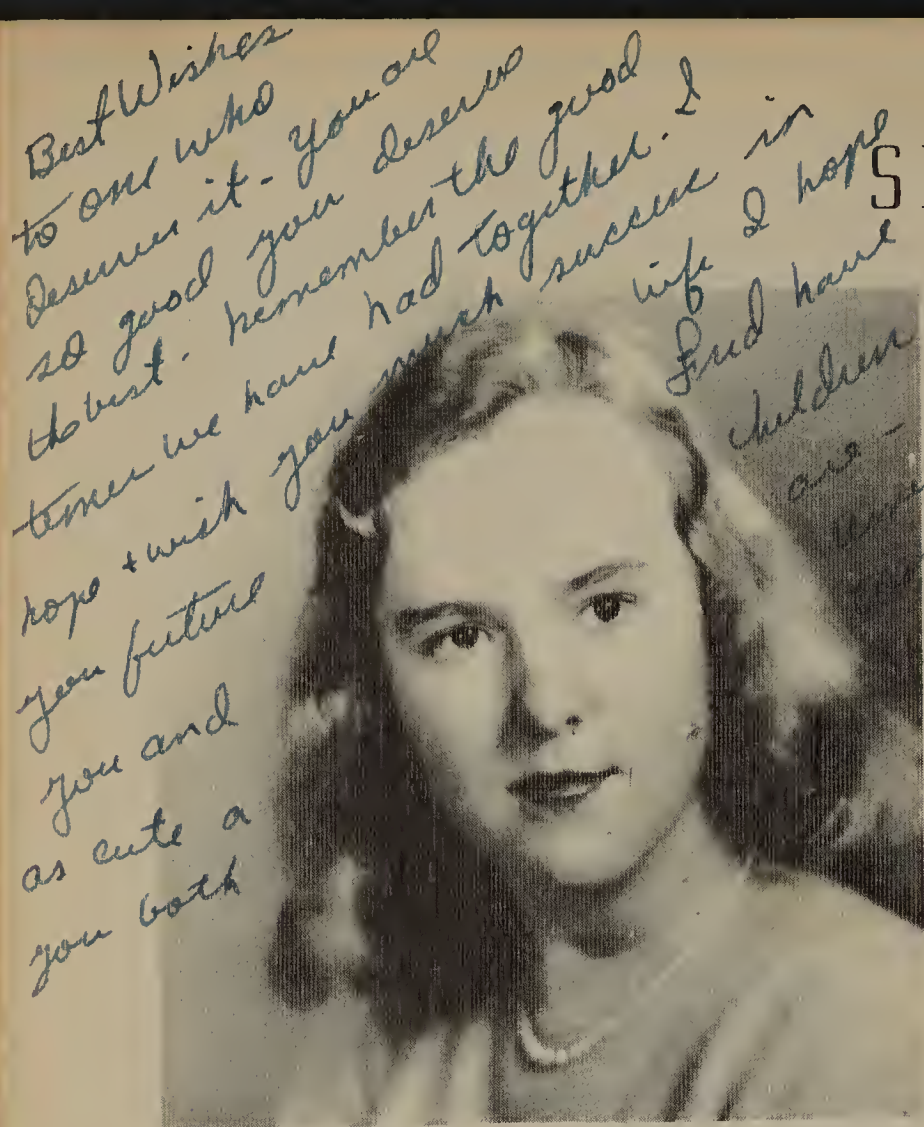 Best Wishes
to one who
deserves it - you are
so good you deserve
the best. Remember the good
times we have had together. I
hope + wish you much success in
you future life I hope
you and Fred have
as cute a children
you both are -
S